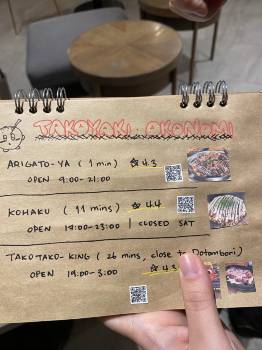 TAKOYAKI OKONOMI
ARIGATO-YA (1 min) ☆ 4.3
OPEN 9:00-21:00
KOHAKU (11 mins) ☆ 4.4
OPEN 17:00-23:00 | CLOSED SAT
TAKOTAKO-KING (26 mins, close to Dotombori)
OPEN 19:00-3:00 ☆ 4.3